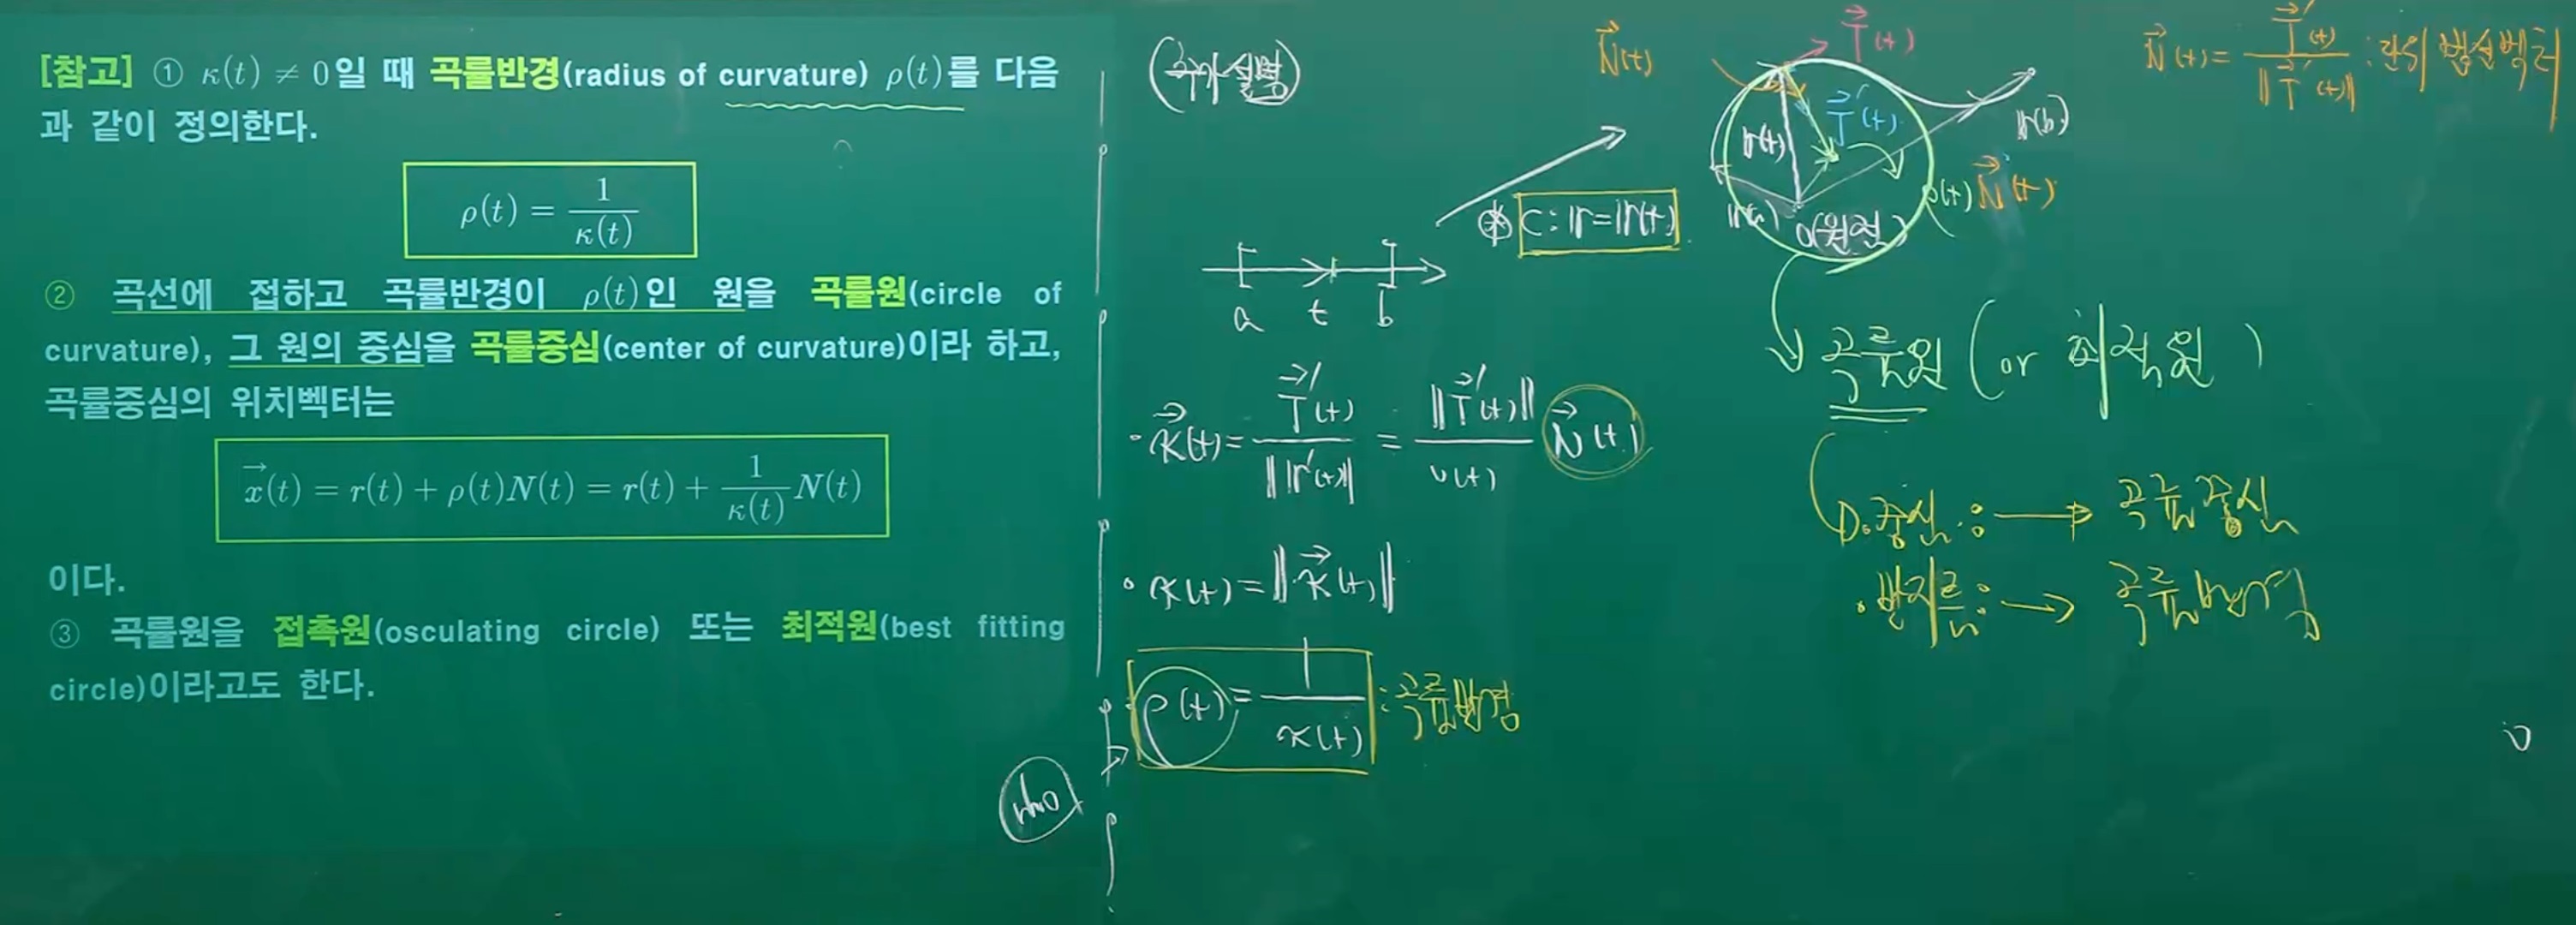 [참고] ① κ(t) ≠ 0일 때 곡률반경(radius of curvature) ρ(t)를 다음
과 같이 정의한다.
ρ(t) = 1/κ(t)
② 곡선에 접하고 곡률반경이 ρ(t)인 원을 곡률원(circle of
curvature), 그 원의 중심을 곡률중심(center of curvature)이라 하고,
곡률중심의 위치벡터는
x⃗(t) = r(t) + ρ(t)N(t) = r(t) + 1/κ(t) N(t)
이다.
③ 곡률원을 접촉원(osculating circle) 또는 최적원(best fitting
circle)이라고도 한다.
(추가설명)
a t b
⊛ C : r = r(t)
·κ⃗(t) = T⃗′(t)/‖r′(t)‖ = ‖T⃗′(t)‖/v(t) N⃗(t)
·κ(t) = ‖κ⃗(t)‖
·ρ(t) = 1/κ(t) : 곡률반경
rho
N⃗(t)
T⃗(t)
T⃗′(t)
r(t)
r(b)
r(a)
O(원점)
ρ(t) N⃗(t)
N⃗(t) = T⃗′(t)/‖T⃗′(t)‖ : 단위법선벡터
곡률원 (or 최적원)
중심 : → 곡률중심
·반지름 : → 곡률반경